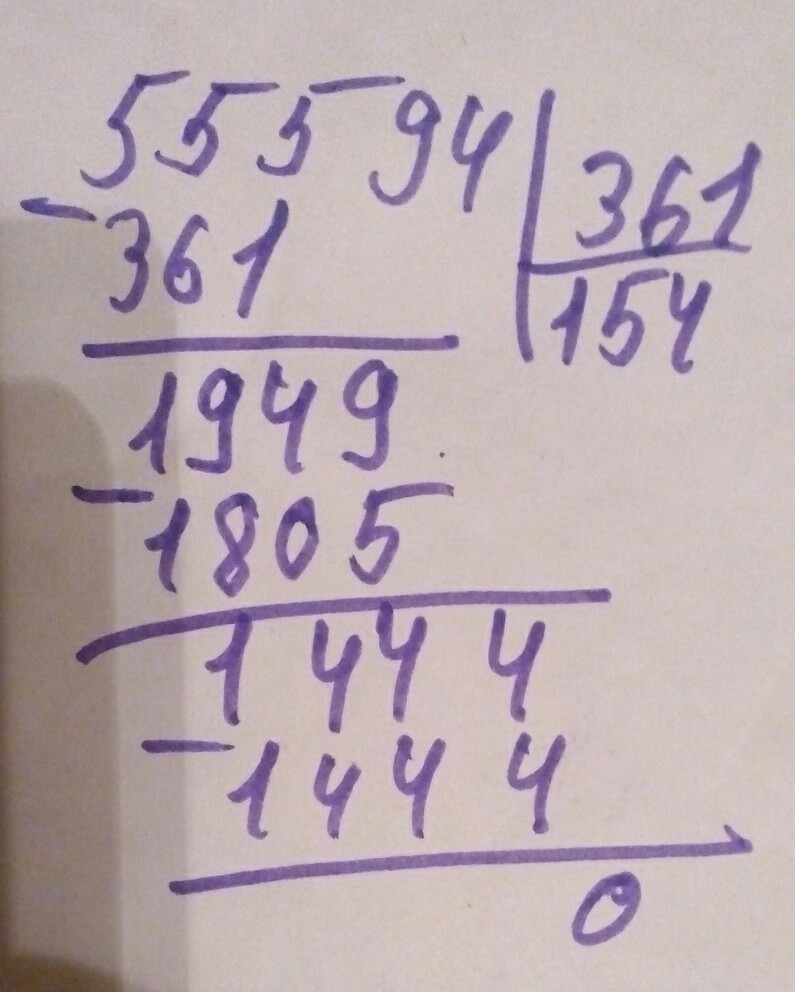 55594 361
-361 154
1949
-1805
1444
-1444
0